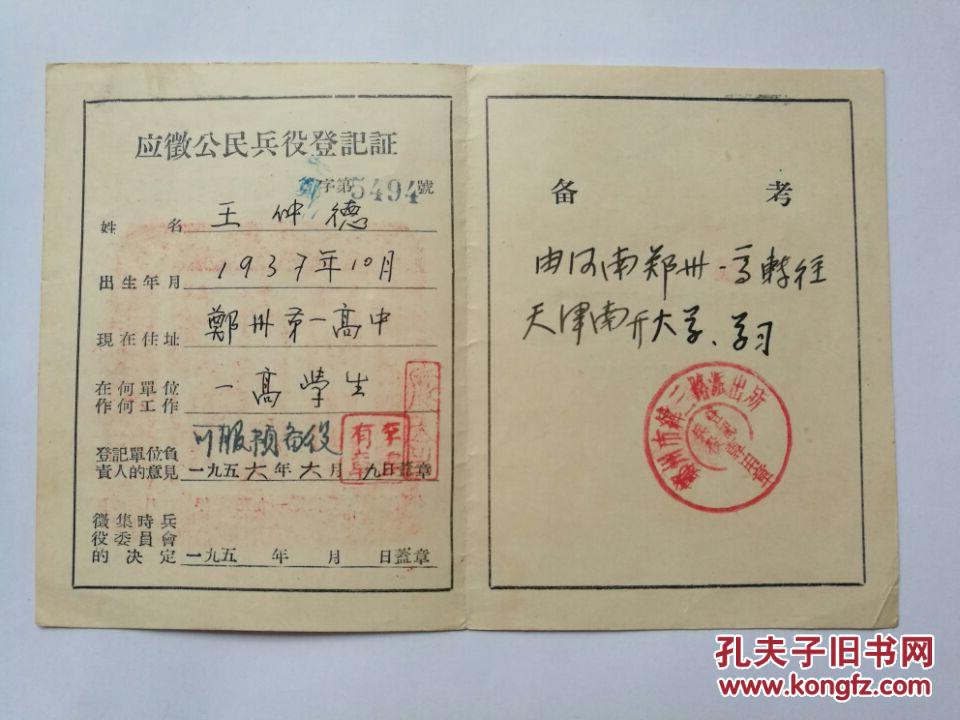 应徵公民兵役登記証
鄭字第5494號
姓名 王仲德
出生年月 1937年10月
現在住址 鄭州第一高中
在何單位
作何工作 一高學生
登記單位負
責人的意見 可服預备役
一九五六年六月九日蓋章
徵集時兵
役委員會
的决定 一九五 年 月 日蓋章
备考
由河南郑州一高轉往
天津南开大学、学习
鄭州市 二路派出所
孔夫子旧书网
www.kongfz.com